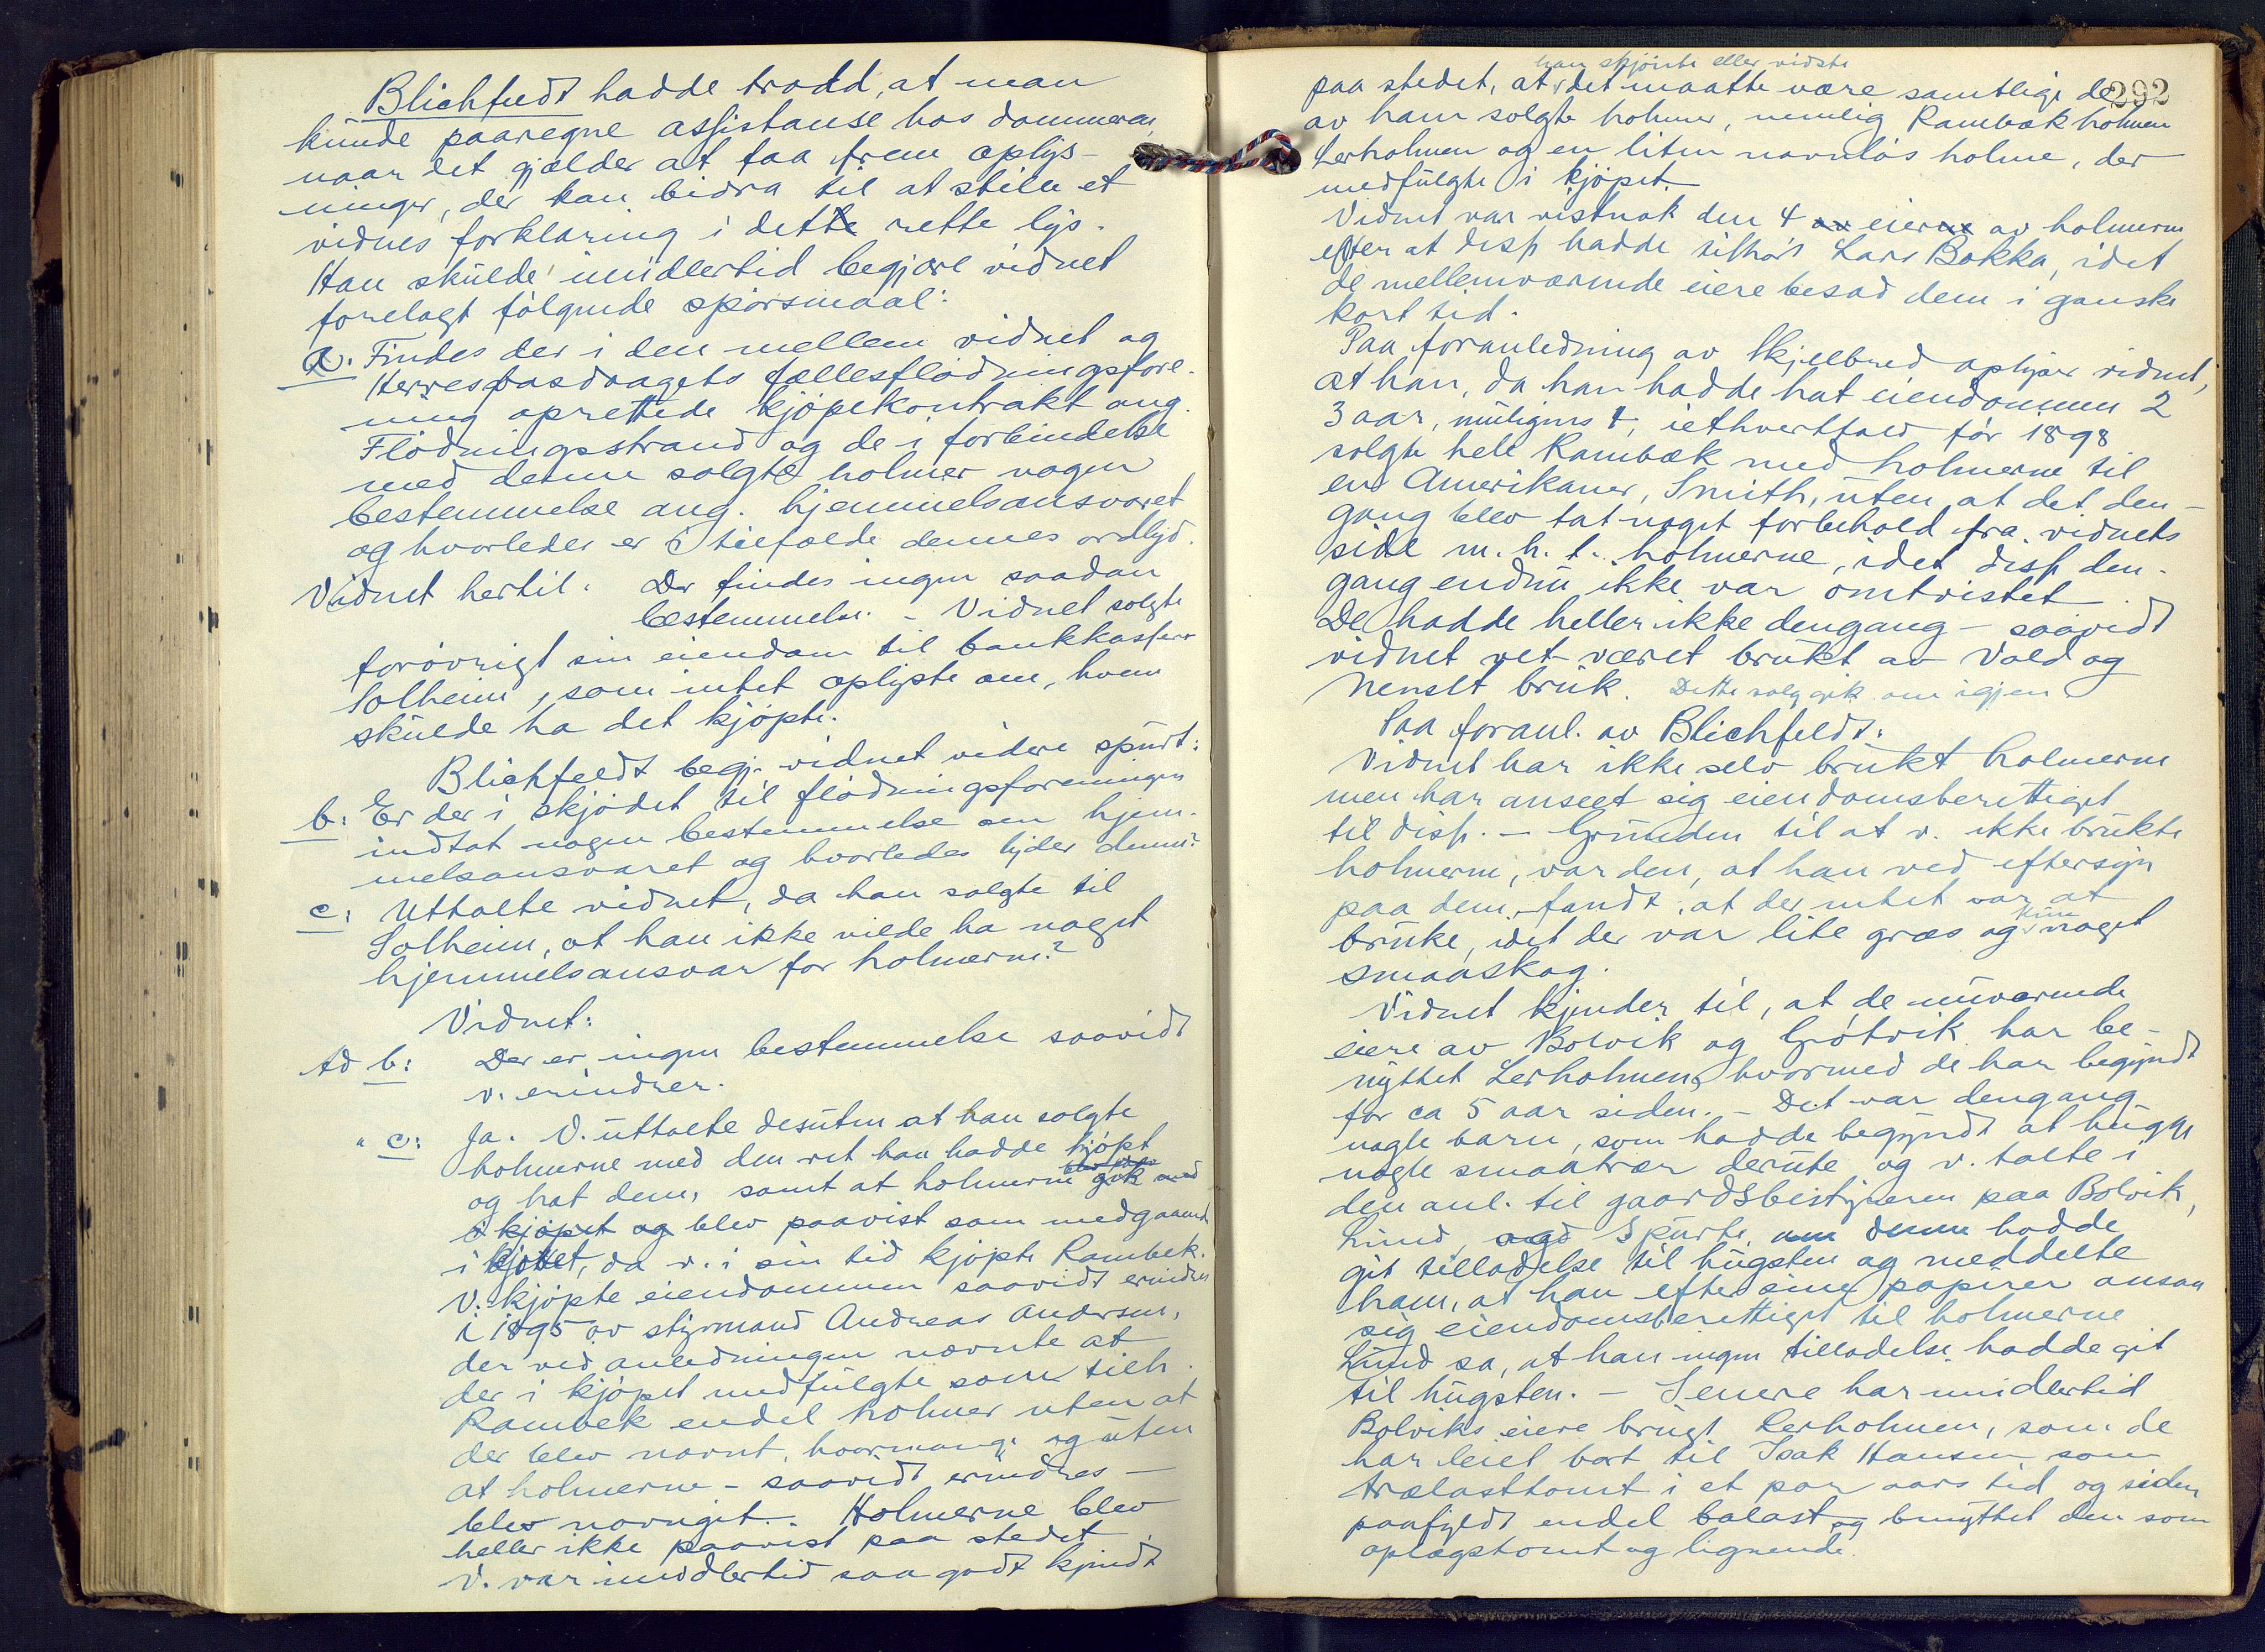 Blichfeldt hadde trodd, at man
kunde paaregne assistanse hos dommeren,
naar det gjælder at faa frem oplys-
ninger, der kan bidra til at stille et
vidnes forklaring i dette rette lys.
Han skulde imidlertid begjære vidnet
forelagt følgende spørsmaal:
a. Findes der i den mellem vidnet og
Herrevasdragets fællesflødningsfore-
ning oprettede kjøpekontrakt ang.
Flødningsstrand og de i forbindelse
med denne solgte holmer nogen
bestemmelse ang. hjemmelsansvaret
og hvorledes er i tilfælde dennes ordlyd.
Vidnet hertil: Der findes ingen saadan
bestemmelse. - Vidnet solgte
forøvrigt sin eiendom til bankkasserer
Solheim, som intet oplyste om, hvem
skulde ha det kjøpte.
Blichfeldt begj. vidnet videre spurt:
b: Er der i skjødet til flødningsforeningen
indtat nogen bestemmelse om hjem-
melsansvaret og hvorledes lyder denne?
c: Uttalte vidnet, da han solgte til
Solheim, at han ikke vilde ha noget
hjemmelsansvar for holmerne?
Vidnet:
Ad b: Der er ingen bestemmelse saavidt
v. erindrer.
" c: Ja. V. uttalte desuten at han solgte
holmerne med den ret han hadde kjøpt
og hat dem, samt at holmerne gik med
i kjøpet og blev paavist som medgaaende
i kjøpet, da v. i sin tid kjøpte Rambek.
V. kjøpte eiendommen saavidt erindres
i 1895 av styrmand Andreas Andersen,
der ved anledningen nævnte at
der i kjøpet medfulgte som tilh.
Rambek endel holmer uten at
der blev nævnt, hvormange og uten
at holmerne - saavidt erindres -
blev navngit. Holmerne blev
heller ikke paavist paa stedet.
V. var imidlertid saa godt kjendt
292
han skjønte eller vidste
paa stedet, at det maatte være samtlige de
av ham solgte holmer, nemlig Rambækholmen
Lerholmen og en liten navnløs holme, der
medfulgte i kjøpet.
Vidnet var vistnok den 4 av eierne av holmerne
efter at disse hadde tilhørt Lars Bakka, idet
de mellemværende eiere besad dem i ganske
kort tid.
Paa foranledning av Skjelbred oplyser vidnet,
at han, da han hadde hat eiendommen 2
3 aar, muligens 4, iethvertfald før 1898
solgte hele Rambæk med holmerne til
en Amerikaner, Smith, uten at det den-
gang blev tat noget forbehold fra vidnets
side m. h. t. holmerne, idet disse den-
gang endnu ikke var omtvistet.
De hadde heller ikke dengang - saavidt
vidnet vet - været brukt av Vold og
Nenset bruk. Dette salg gik om igjen
Paa foranl. av Blichfeldt:
Vidnet har ikke selv brukt holmerne
men har anseet sig eiendomsberettiget
til disse. - Grunden til at v. ikke brukte
holmerne, var den, at han ved eftersyn
paa dem, fandt, at der intet var at
bruke, idet der var lite græs og kun noget
smaaskog.
Vidnet kjender til, at de nuværende
eiere av Bolvik og Grøtvik har be-
nyttet Lerholmen, hvormed de har begyndt
for ca 5 aar siden. - Det var dengang
nogle barn, som hadde begyndt at hugge
nogle smaatrær derute og v. talte i
den anl. til gaardsbestyreren paa Bolvik,
Lund, og spurte, om denne hadde
git tilladelse til hugsten og meddelte
ham, at han efter sine papirer ansaa
sig eiendomsberettiget til holmerne
Lund sa, at han ingen tilladelse hadde git
til hugsten. - Senere har imidlertid
Bolviks eiere brugt Lerholmen, som de
har leiet bort til Isak Hansen som
trælasttomt i et par aars tid og siden
paafyldt endel balast og benyttet den som
oplagstomt og lignende.